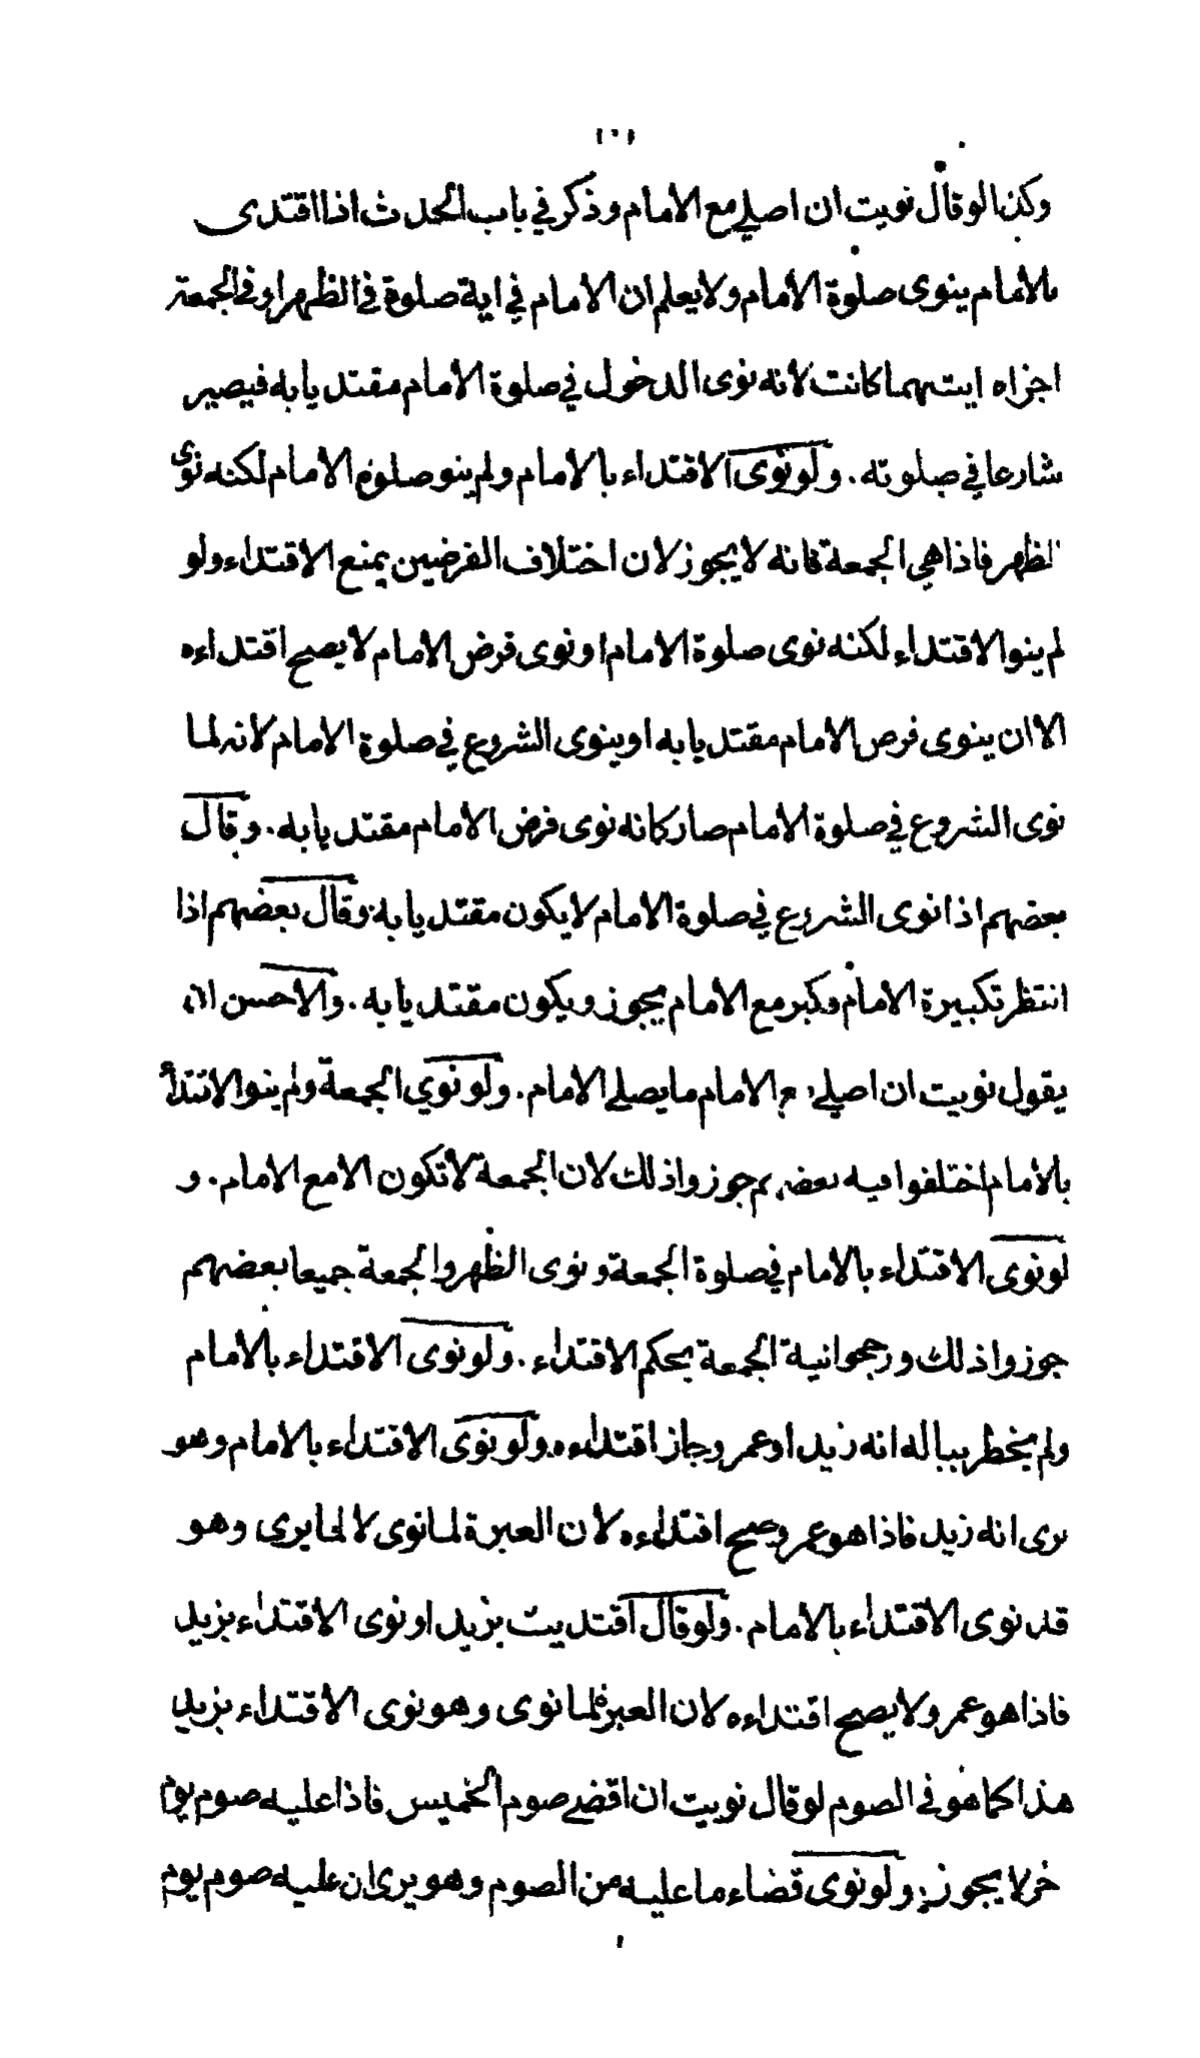 ١٠١
وكذا لو قال نويت ان اصلي مع الامام وذكر في باب الحدث اذا اقتدى
بالامام ينوى صلوة الامام ولا يعلم ان الامام في اية صلوة في الظهر او في الجمعة
اجزاه ايتهما كانت لانه نوى الدخول في صلوة الامام مقتديا به فيصير
شارعا في صلوته . ولو نوى الاقتداء بالامام ولم ينو صلوة الامام لكنه نوى
الظهر فاذا هي الجمعة فانه لا يجوز لان اختلاف الفرضين يمنع الاقتداء ولو
لم ينوا الاقتداء لكنه نوى صلوة الامام او نوى فرض الامام لا يصح اقتداءه
الا ان ينوى فرص الامام مقتديا به او ينوى الشروع في صلوة الامام لانه لما
نوى الشروع في صلوة الامام صار كانه نوى فرض الامام مقتديا به . وقال
بعضهم اذا نوى الشروع في صلوة الامام لا يكون مقتديا به وقال بعضهم اذا
انتظر تكبيرة الامام وكبر مع الامام يجوز ويكون مقتديا به . والاحسن ان
يقول نويت ان اصلي مع الامام ما يصلي الامام . ولو نوي الجمعة ولم ينوا الاقتداء
بالامام اختلفوا فيه بعضهم جوزوا ذلك لان الجمعة لا تكون الا مع الامام . و
لو نوى الاقتداء بالامام في صلوة الجمعة ونوى الظهر والجمعة جميعا بعضهم
جوزوا ذلك ورجحوا نية الجمعة بحكم الاقتداء . ولو نوى الاقتداء بالامام
ولم يخطر بباله انه زيد او عمر وجاز اقتداءه ولو نوى الاقتداء بالامام وهو
يرى انه زيد فاذا هو عمر وصح اقتداءه لان العبرة لما نوى لا لما يرى وهو
قد نوى الاقتداء بالامام . ولو قال اقتديت بزيد او نوى الاقتداء بزيد
فاذا هو عمر ولا يصح اقتداءه لان العبرة لما نوى وهو نوى الاقتداء بزيد
هذا كما هو في الصوم لو قال نويت ان اقضي صوم الخميس فاذا عليه صوم يوم
خر لا يجوز ولو نوى قضاء ما عليه من الصوم وهو يرى ان عليه صوم يوم